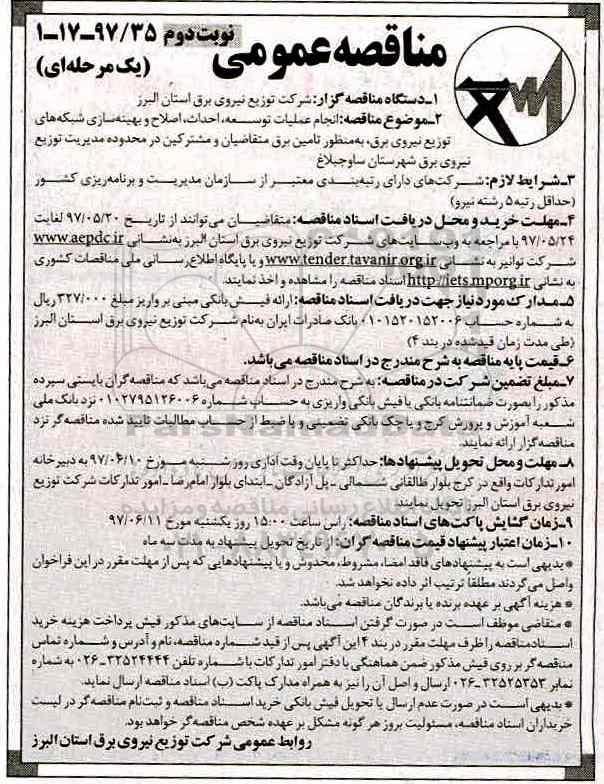 مناقصه عمومی
نوبت دوم ۹۷/۳۵-۱۷-۱
(یک مرحله‌ای)
۱ـ دستگاه مناقصه گزار: شرکت توزیع نیروی برق استان البرز
۲ـ موضوع مناقصه: انجام عملیات توسعه، احداث، اصلاح و بهینه‌سازی شبکه‌های
توزیع نیروی برق، به‌منظور تامین برق متقاضیان و مشترکین در محدوده مدیریت توزیع
نیروی برق شهرستان ساوجبلاغ
۳ـ شرایط لازم: شرکت‌های دارای رتبه‌بندی معتبر از سازمان مدیریت و برنامه‌ریزی کشور
(حداقل رتبه ۵ رشته نیرو)
۴ـ مهلت خرید و محل دریافت اسناد مناقصه: متقاضیان می‌توانند از تاریخ ۹۷/۰۵/۲۰ لغایت
۹۷/۰۵/۲۴ با مراجعه به وب‌سایت‌های شرکت توزیع نیروی برق استان البرز به‌نشانی www.aepdc.ir
شرکت توانیر به نشانی www.tender.tavanir.org.ir و یا پایگاه اطلاع‌رسانی ملی مناقصات کشوری
به نشانی http://iets.mporg.ir اسناد مناقصه را مشاهده و اخذ نمایند.
۵ـ مدارک مورد نیاز جهت دریافت اسناد مناقصه: ارائه فیش بانکی مبنی بر واریز مبلغ ۳۲۷/۰۰۰ ریال
به شماره حساب ۰۱۰۱۵۲۰۱۵۲۰۰۶ بانک صادرات ایران به‌نام شرکت توزیع نیروی برق استان البرز
(طی مدت زمان قیدشده در بند ۴)
۶ـ قیمت پایه مناقصه به شرح مندرج در اسناد مناقصه می‌باشد.
۷ـ مبلغ تضمین شرکت در مناقصه: به شرح مندرج در اسناد مناقصه می‌باشد که مناقصه‌گران بایستی سپرده
مذکور را بصورت ضمانتنامه بانکی یا فیش بانکی واریزی به حساب شماره ۰۱۰۲۷۹۵۱۲۶۰۰۶ نزد بانک ملی
شعبه آموزش و پرورش کرج و یا چک بانکی تضمینی و یا ضبط از حساب مطالبات تایید شده مناقصه‌گر نزد
مناقصه‌گزار ارائه نمایند.
۸ـ مهلت و محل تحویل پیشنهادها: حداکثر تا پایان وقت اداری روز شنبه مورخ ۹۷/۰۶/۱۰ به دبیرخانه
امور تدارکات واقع در کرج بلوار طالقانی شمالی ـ پل آزادگان ـ ابتدای بلوار امام رضا ـ امور تدارکات شرکت توزیع
نیروی برق استان البرز تحویل نمایند.
۹ـ زمان گشایش پاکت‌های اسناد مناقصه: راس ساعت ۱۵:۰۰ روز یکشنبه مورخ ۹۷/۰۶/۱۱
۱۰ـ زمان اعتبار پیشنهاد قیمت مناقصه گران: از تاریخ تحویل پیشنهاد به مدت سه ماه
* بدیهی است به پیشنهادهای فاقد امضا، مشروط، مخدوش و یا پیشنهادهایی که پس از مهلت مقرر در این فراخوان
واصل می‌گردند مطلقا ترتیب اثر داده نخواهد شد.
* هزینه آگهی بر عهده برنده یا برندگان مناقصه می‌باشد.
* متقاضی موظف است در صورت گرفتن اسناد مناقصه از سایت‌های مذکور فیش پرداخت هزینه خرید
اسناد مناقصه را ظرف مهلت مقرر در بند ۴ این آگهی پس از قید شماره مناقصه، نام و آدرس و شماره تماس
مناقصه‌گر بر روی فیش مذکور ضمن هماهنگی با دفتر امور تدارکات با شماره تلفن ۳۲۵۲۴۴۴۴-۰۲۶ به شماره
نمابر ۳۲۵۲۵۳۵۳-۰۲۶ ارسال و اصل آن را نیز به همراه مدارک پاکت (ب) اسناد مناقصه ارسال نماید.
* بدیهی است در صورت عدم ارسال یا تحویل فیش بانکی خرید اسناد مناقصه و ثبت‌نام مناقصه‌گر در لیست
خریداران اسناد مناقصه، مسئولیت بروز هر گونه مشکل بر عهده شخص مناقصه‌گر خواهد بود.
روابط عمومی شرکت توزیع نیروی برق استان البرز